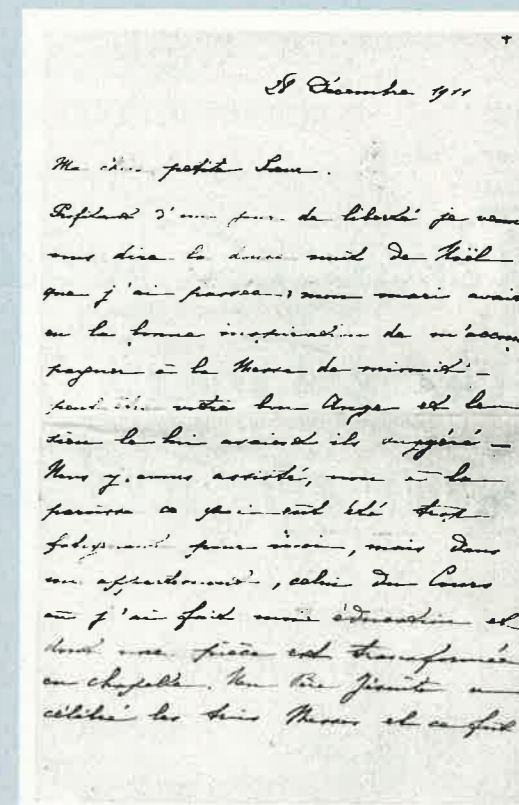 28 Décembre 1911
Ma chère petite Sœur.
Profitant d'un jour de liberté je veux
vous dire la douce nuit de Noël
que j'ai passée ; mon mari avait
eu la bonne inspiration de m'accom
pagner à la Messe de minuit –
peut-être votre bon Ange et le
sien le lui avaient ils suggéré –
Nous y avons assisté, non à la
paroisse ce qui eut été trop
fatiguant pour moi, mais dans
un appartement, celui du Cours
où j'ai fait mon éducation et
dont une pièce est transformée
en chapelle. Un Père Jésuite a
célébré les trois Messes et ce fut